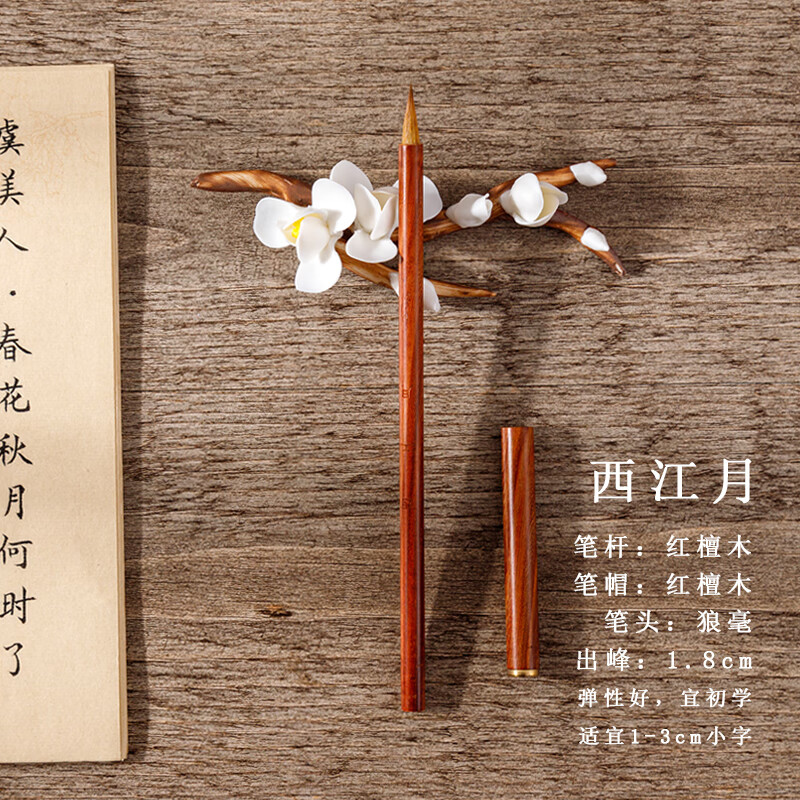 虞美人·春花秋月何时了
西江月
笔杆：红檀木
笔帽：红檀木
笔头：狼毫
出峰：1.8cm
弹性好，宜初学
适宜1-3cm小字